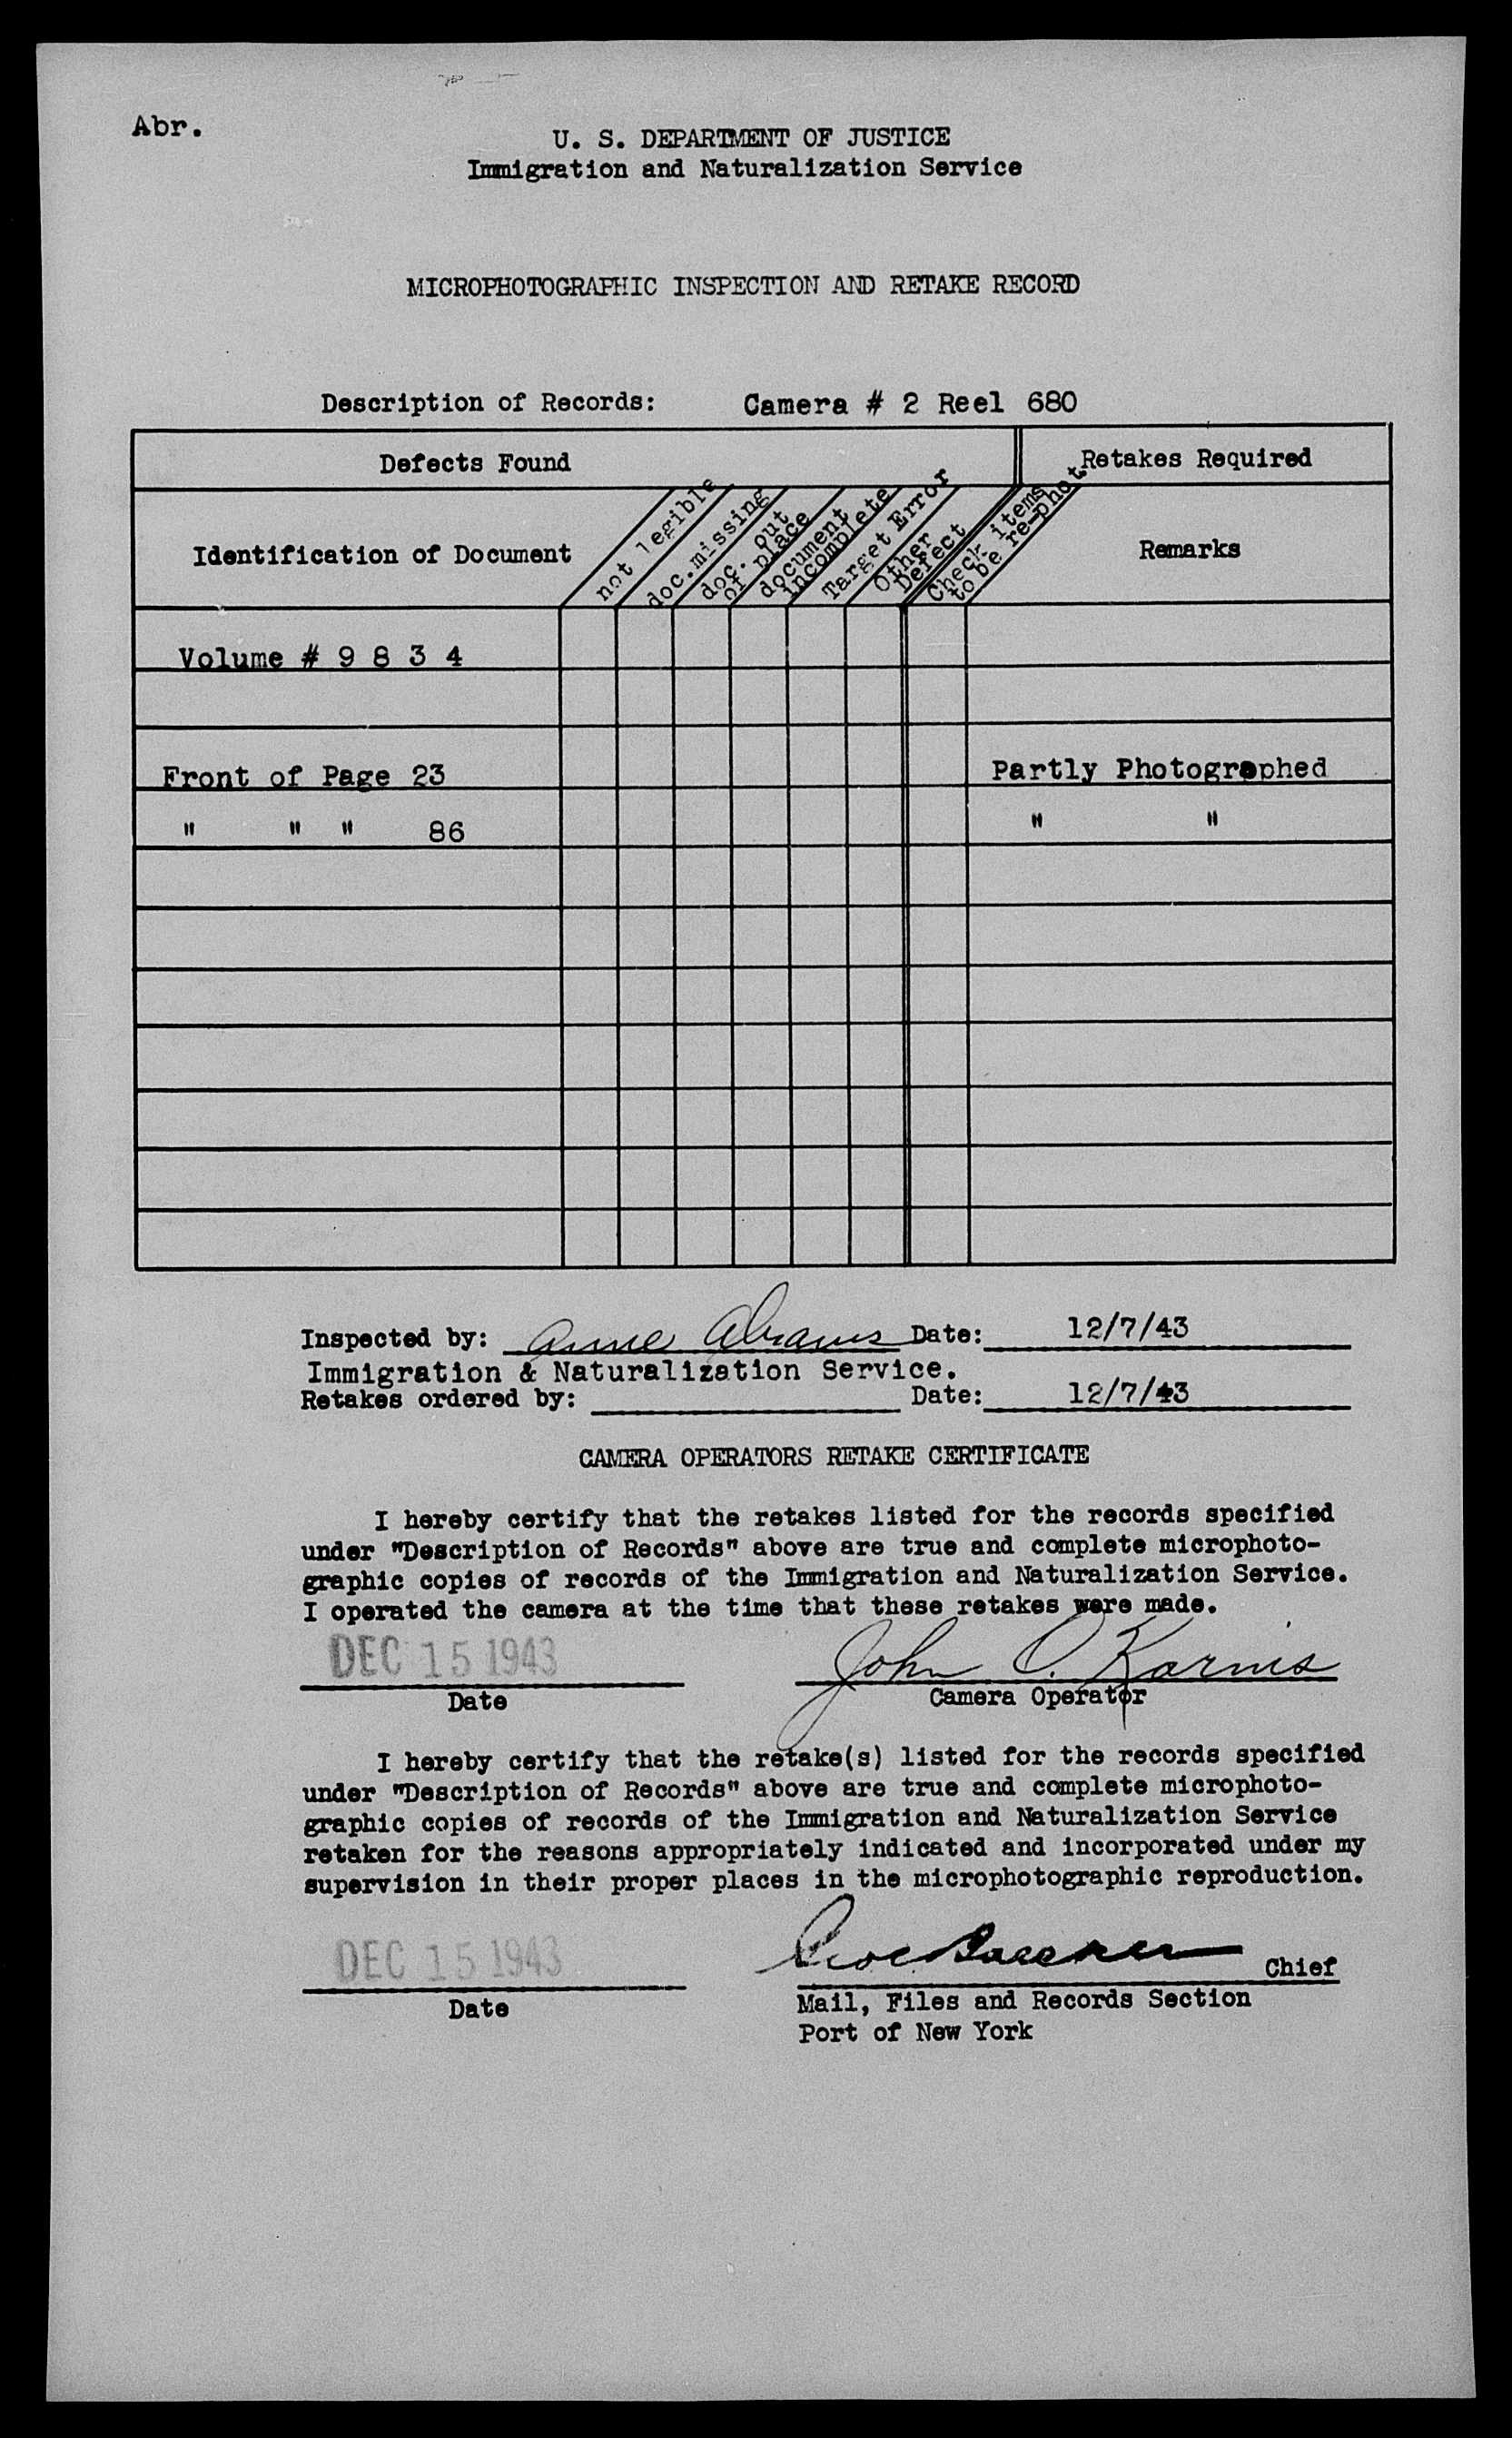 Abr.
U. S. DEPARTMENT OF JUSTICE
Immigration and Naturalization Service
MICROPHOTOGRAPHIC INSPECTION AND RETAKE RECORD
Description of Records: Camera # 2 Reel 680
Defects Found
Retakes Required
Identification of Document
not legible
doc.missing
doc. out
of place
document
incomplete
Target Error
Other
Defect
Check items
to be re-phot.
Remarks
Volume # 9 8 3 4
Front of Page 23 Partly Photographed
" " " 86 " "
Inspected by: Anne Abrams Date: 12/7/43
Immigration & Naturalization Service.
Retakes ordered by: Date: 12/7/43
CAMERA OPERATORS RETAKE CERTIFICATE
I hereby certify that the retakes listed for the records specified
under "Description of Records" above are true and complete microphoto-
graphic copies of records of the Immigration and Naturalization Service.
I operated the camera at the time that these retakes were made.
DEC 15 1943 John O. Karnis
Date Camera Operator
I hereby certify that the retake(s) listed for the records specified
under "Description of Records" above are true and complete microphoto-
graphic copies of records of the Immigration and Naturalization Service
retaken for the reasons appropriately indicated and incorporated under my
supervision in their proper places in the microphotographic reproduction.
DEC 15 1943 Chief
Date Mail, Files and Records Section
Port of New York